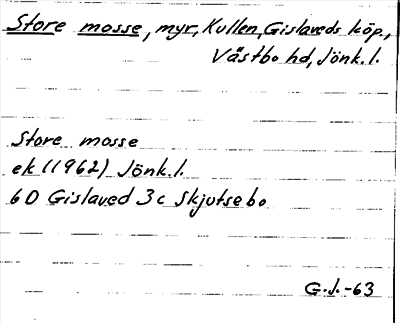 Store mosse, myr, Kullen, Gislaveds köp.,
Västbo hd, Jönk. l.
Store mosse
ek (1962) Jönk. l.
6D Gislaved 3c Skjutsebo
G.J.-63